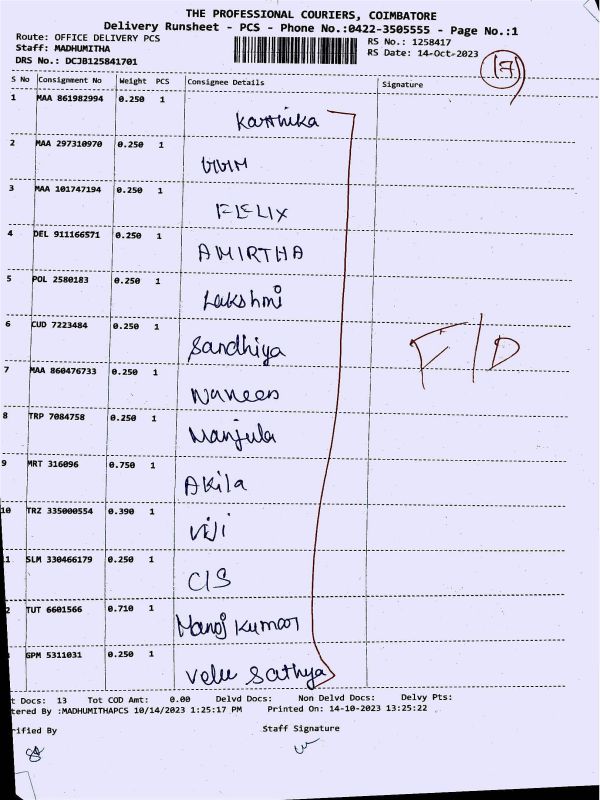 THE PROFESSIONAL COURIERS, COIMBATORE
Delivery Runsheet - PCS - Phone No.:0422-3505555 - Page No.:1
Route: OFFICE DELIVERY PCS RS No.: 1258417
Staff: MADHUMITHA RS Date: 14-Oct-2023
DRS No.: DCJB125841701
17
S No Consignment No Weight PCS Consignee Details Signature
1 MAA 861982994 0.250 1 Karthika
2 MAA 297310970 0.250 1
3 MAA 101747194 0.250 1 FELIX
4 DEL 911166571 0.250 1 AMIRTHA
5 POL 2580183 0.250 1 Lakshmi
6 CUD 7223484 0.250 1 Sandhiya
F/D
7 MAA 860476733 0.250 1 Naveen
8 TRP 7084758 0.250 1 Manjula
9 MRT 316096 0.750 1 Akila
10 TRZ 335000554 0.390 1 Viji
1 SLM 330466179 0.250 1 CIS
2 TUT 6601566 0.710 1 Manoj Kumar
GPM 5311031 0.250 1 Velu Sathya
t Docs: 13 Tot COD Amt: 0.00 Delvd Docs: Non Delvd Docs: Delvy Pts:
tered By :MADHUMITHAPCS 10/14/2023 1:25:17 PM Printed On: 14-10-2023 13:25:22
rified By Staff Signature